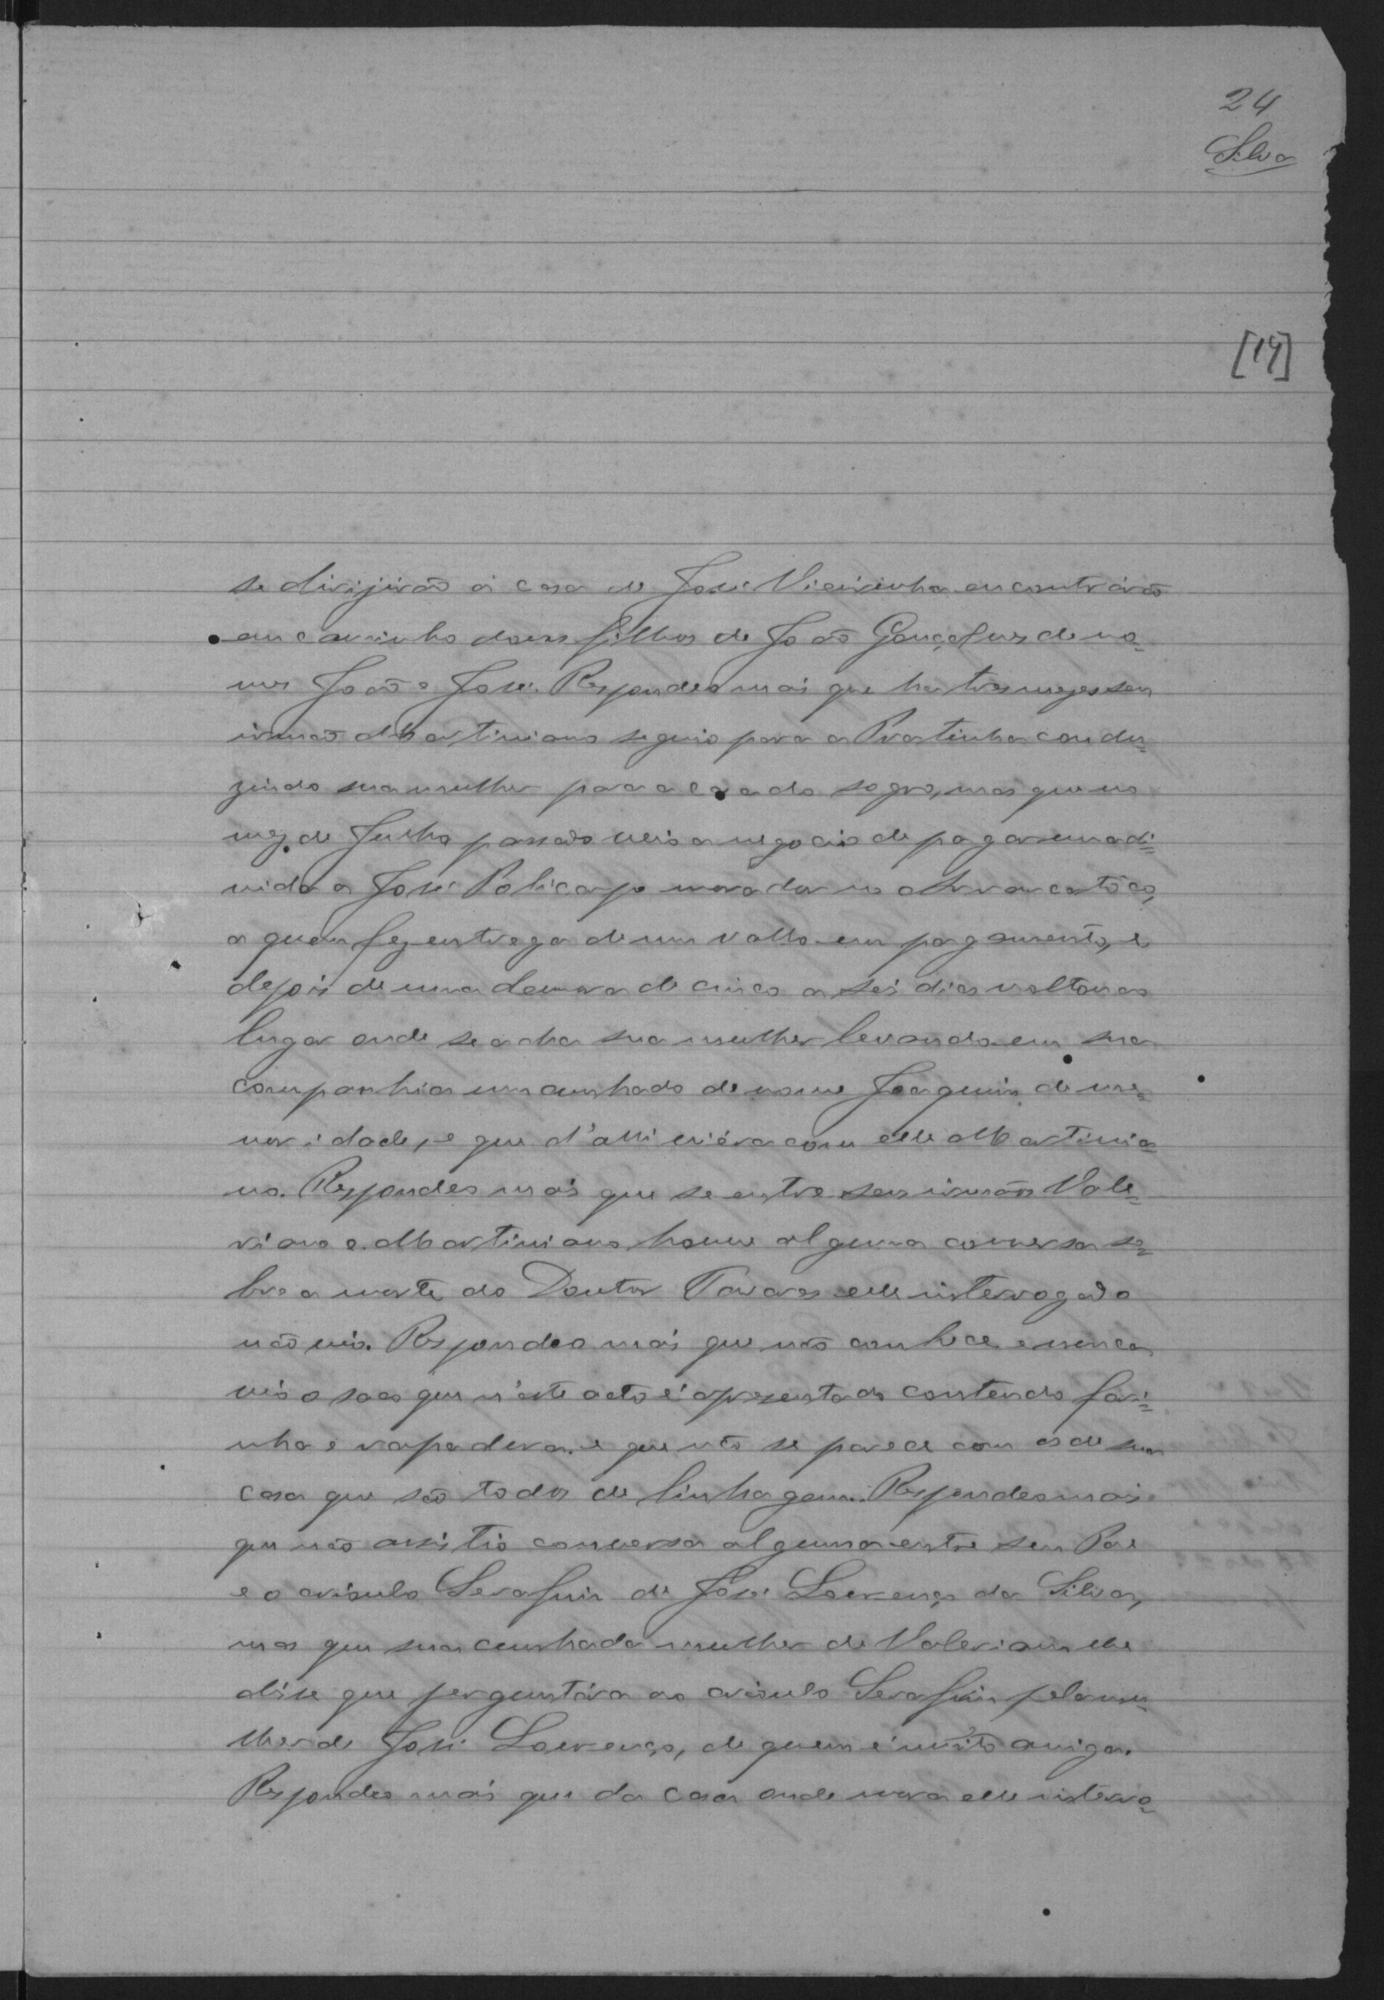 24
Silva
[19]
se dirijirão á casa de José Vieirinha encontrárão
em caminho dous filhos de João Gonçalves de no=
mes João e José. Respondeo mais que ha tres mezes seu
irmão Martiniano seguio para a Pratinha condu=
zindo sua mulher para a casa do sogro, mas que no
mez de Junho passado veio a negocio de pagar uma di=
vida a José Policarpo morador no Arrancatôco,
a quem fez entrega de um vallo em pagamento, e
depois de uma demora de cinco a seis dias voltou ao
lugar onde se acha sua mulher levando em sua
companhia um cunhado de nome Joaquim de me=
nor idade, e que d'alli viéra com elle Martinia=
no. Respondeo mais que se entre seus irmãos Vale=
riano e Martiniano houve alguma conversa so=
bre a morte do Doutor Tavares elle interrogado
não vio. Respondeo mais que não conhece e nunca
vio o saco que n'este acto é apresentado contendo fari=
nha e rapadura e que não se parece com os de sua
casa que são todos de linhagem. Respondeo mais
que não assistio conversa alguma entre seu Pae
e o crioulo Serafim de José Lourenço da Silva,
mas que sua cunhada mulher de Valeriano lhe
disse que perguntára ao crioulo Serafim pela mu=
lher de José Lourenço, de quem é muito amiga.
Respondeo mais que da casa onde mora elle interro=